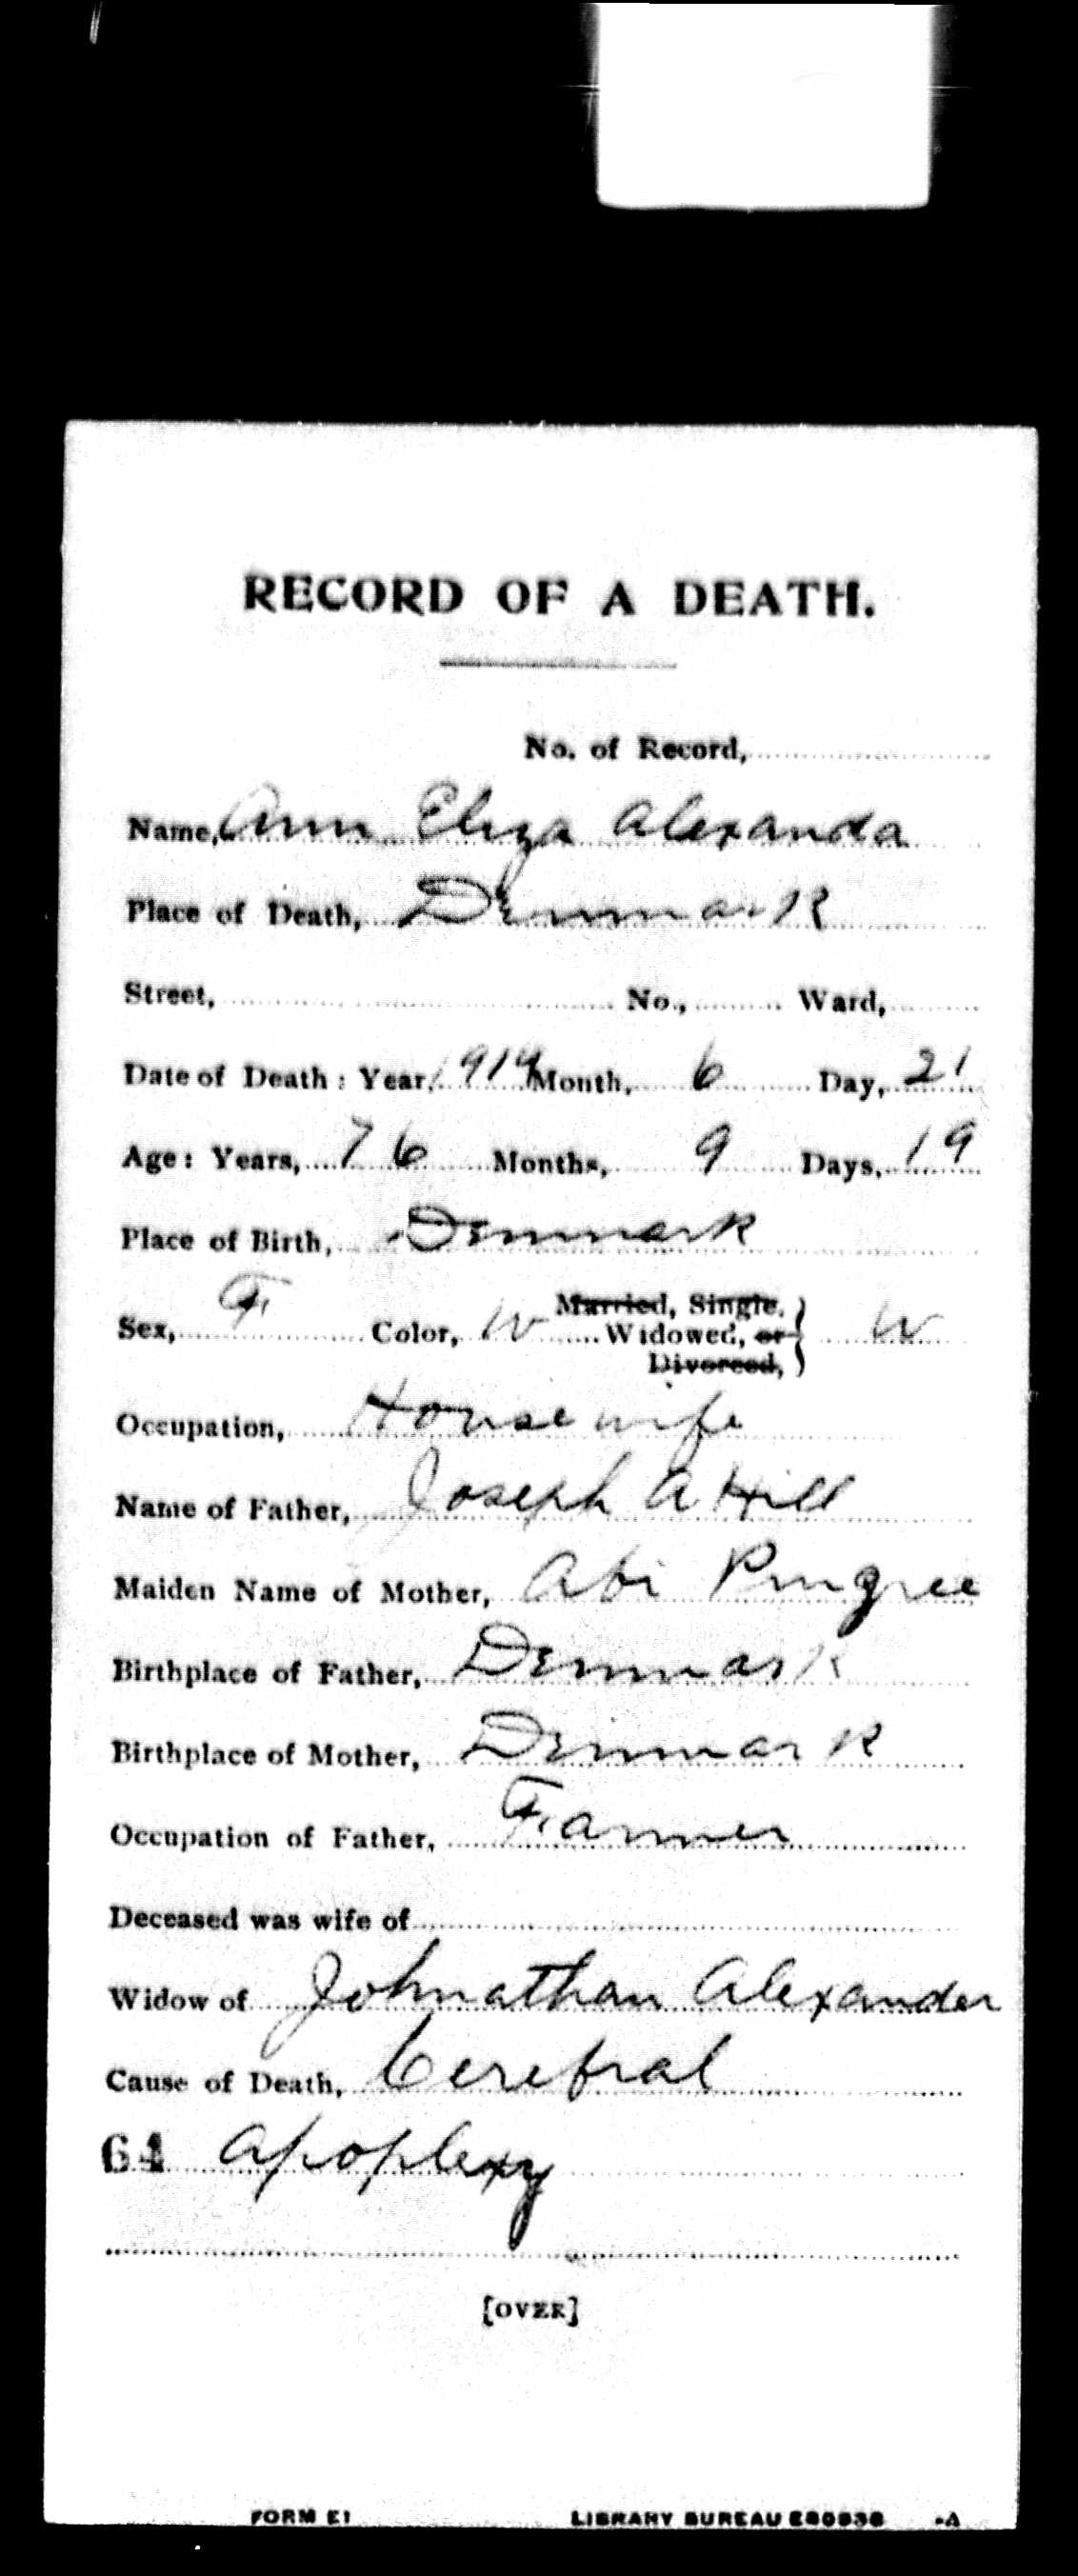 RECORD OF A DEATH.
No. of Record,
Name, Ann Eliza Alexanda
Place of Death, Denmark
Street, No., Ward,
Date of Death: Year, 1919 Month, 6 Day, 21
Age: Years, 76 Months, 9 Days, 19
Place of Birth, Denmark
Sex, F Color, W Married, Single, Widowed, or Divorced, W
Occupation, Housewife
Name of Father, Joseph A Hill
Maiden Name of Mother, Abi Pingree
Birthplace of Father, Denmark
Birthplace of Mother, Denmark
Occupation of Father, Farmer
Deceased was wife of
Widow of Johnathan Alexander
Cause of Death, Cerebral
64 Apoplexy
[OVER]
FORM E1 LIBRARY BUREAU